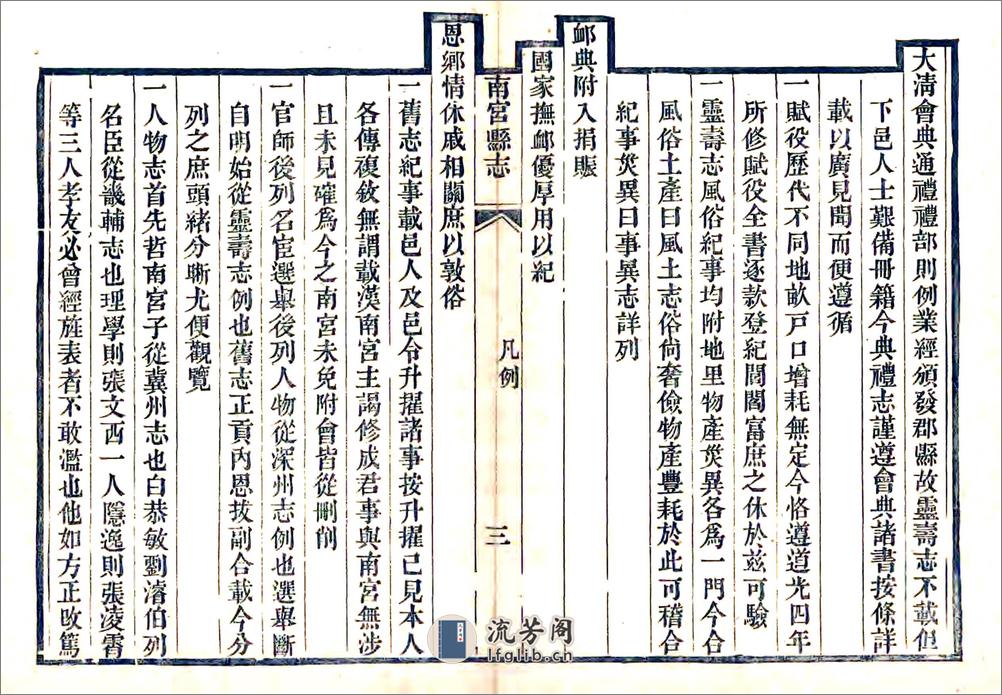 大清會典通禮禮部則例業經頒發郡縣故靈壽志不載但
下邑人士艱備冊籍今典禮志謹遵會典諸書按條詳
載以廣見聞而便遵循
一賦役歷代不同地畝戸口增耗無定今恪遵道光四年
所修賦役全書逐款登紀閭閻富庶之休於兹可驗
一靈壽志風俗紀事均附地里物產災異各爲一門今合
風俗土產曰風土志俗尚奢儉物產豐耗於此可稽合
紀事災異曰事異志詳列
䘏典附入捐賑
國家撫䘏優厚用以紀
南宮縣志
凡例
三
恩鄉情休戚相關庶以敦俗
一舊志紀事載邑人及邑令升擢諸事按升擢已見本人
各傳複敘無謂載漢南宮主謁修成君事與南宮無涉
且未見確爲今之南宮未免附會皆從刪削
一官師後列名宦選舉後列人物從深州志例也選舉斷
自明始從靈壽志例也舊志正貢內恩拔副合載今分
列之庶頭緒分晰尤便觀覽
一人物志首先哲南宮子從冀州志也白恭敏劉濬伯列
名臣從畿輔志也理學則張文西一人隱逸則張凌霄
等三人孝友必曾經旌表者不敢濫也他如方正政篤
流芳阁
lfglib.cn